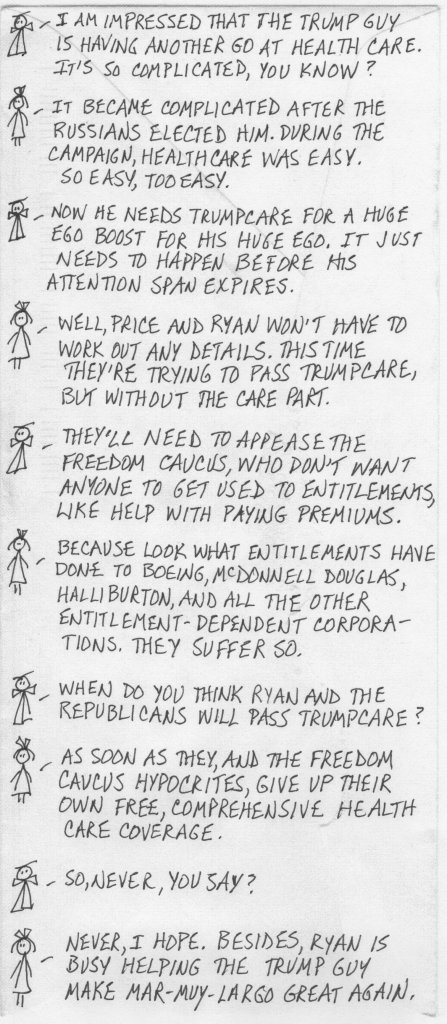 I AM IMPRESSED THAT THE TRUMP GUY
IS HAVING ANOTHER GO AT HEALTH CARE.
IT'S SO COMPLICATED, YOU KNOW?
IT BECAME COMPLICATED AFTER THE
RUSSIANS ELECTED HIM. DURING THE
CAMPAIGN, HEALTHCARE WAS EASY.
SO EASY, TOO EASY.
NOW HE NEEDS TRUMPCARE FOR A HUGE
EGO BOOST FOR HIS HUGE EGO. IT JUST
NEEDS TO HAPPEN BEFORE HIS
ATTENTION SPAN EXPIRES.
WELL, PRICE AND RYAN WON'T HAVE TO
WORK OUT ANY DETAILS. THIS TIME
THEY'RE TRYING TO PASS TRUMPCARE,
BUT WITHOUT THE CARE PART.
THEY'LL NEED TO APPEASE THE
FREEDOM CAUCUS, WHO DON'T WANT
ANYONE TO GET USED TO ENTITLEMENTS,
LIKE HELP WITH PAYING PREMIUMS.
BECAUSE LOOK WHAT ENTITLEMENTS HAVE
DONE TO BOEING, McDONNELL DOUGLAS,
HALLIBURTON, AND ALL THE OTHER
ENTITLEMENT-DEPENDENT CORPORA-
TIONS. THEY SUFFER SO.
WHEN DO YOU THINK RYAN AND THE
REPUBLICANS WILL PASS TRUMPCARE?
AS SOON AS THEY, AND THE FREEDOM
CAUCUS HYPOCRITES, GIVE UP THEIR
OWN FREE, COMPREHENSIVE HEALTH
CARE COVERAGE.
SO, NEVER, YOU SAY?
NEVER, I HOPE. BESIDES, RYAN IS
BUSY HELPING THE TRUMP GUY
MAKE MAR-MUY-LARGO GREAT AGAIN.